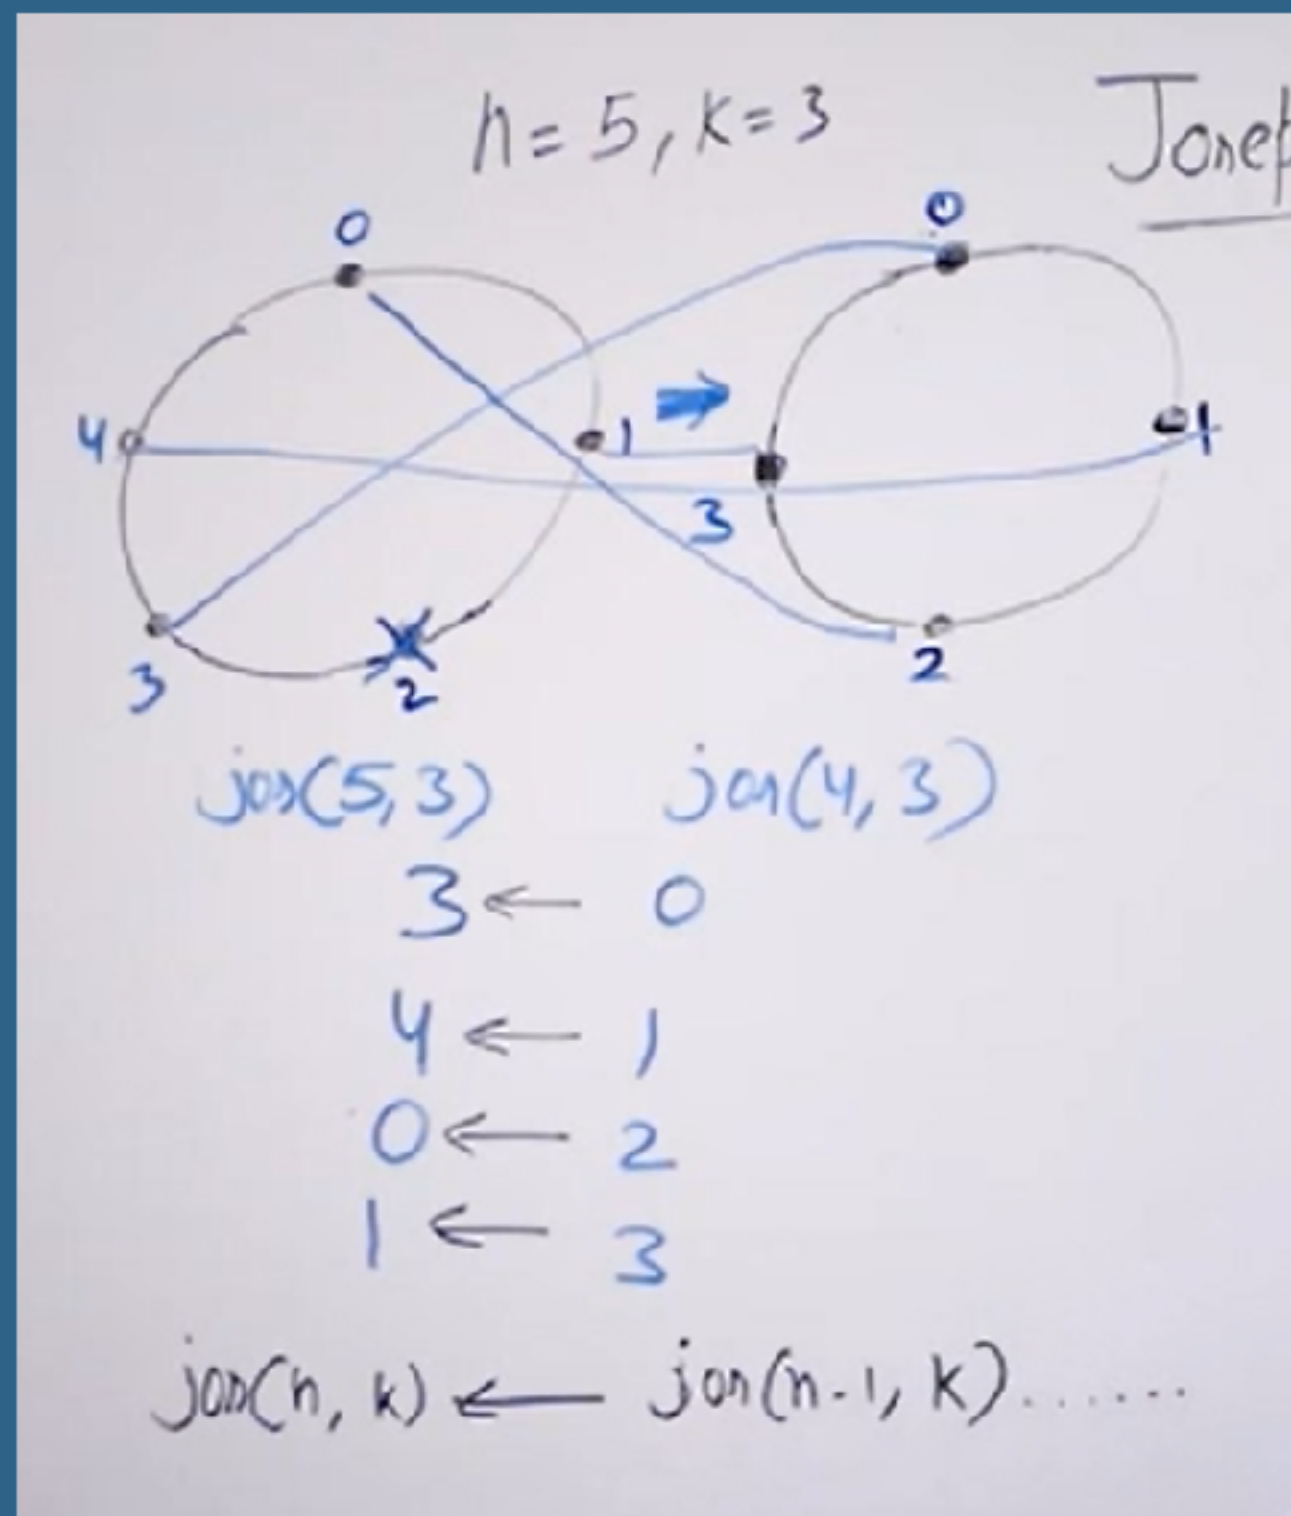 n = 5, k = 3
0
0
4
1
1
3
3
2
2
jos(5, 3) jos(4, 3)
3 ← 0
4 ← 1
0 ← 2
1 ← 3
jos(n, k) ← jos(n-1, k)......